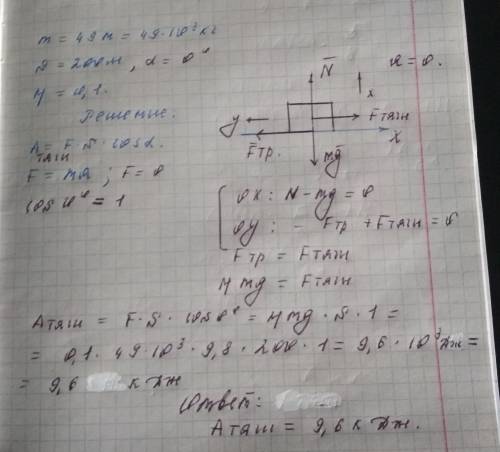 m = 49 т = 49·10³ кг
S = 200 м, α = 0°
μ = 0,1.
Решение.
Aтяги = F·S·cosα.
F = ma ; F = 0
cos 0° = 1
N
x
a = 0.
y
Fтяги
X
Fтр.
mg
OX: N - mg = 0
OY: - Fтр + Fтяги = 0
Fтр = Fтяги
μmg = Fтяги
Aтяги = F·S·cos0° = μmg·S·1 =
= 0,1·49·10³·9,8·200·1 = 9,6·10³ Дж =
= 9,6 кДж
Ответ:
Aтяги = 9,6 кДж.